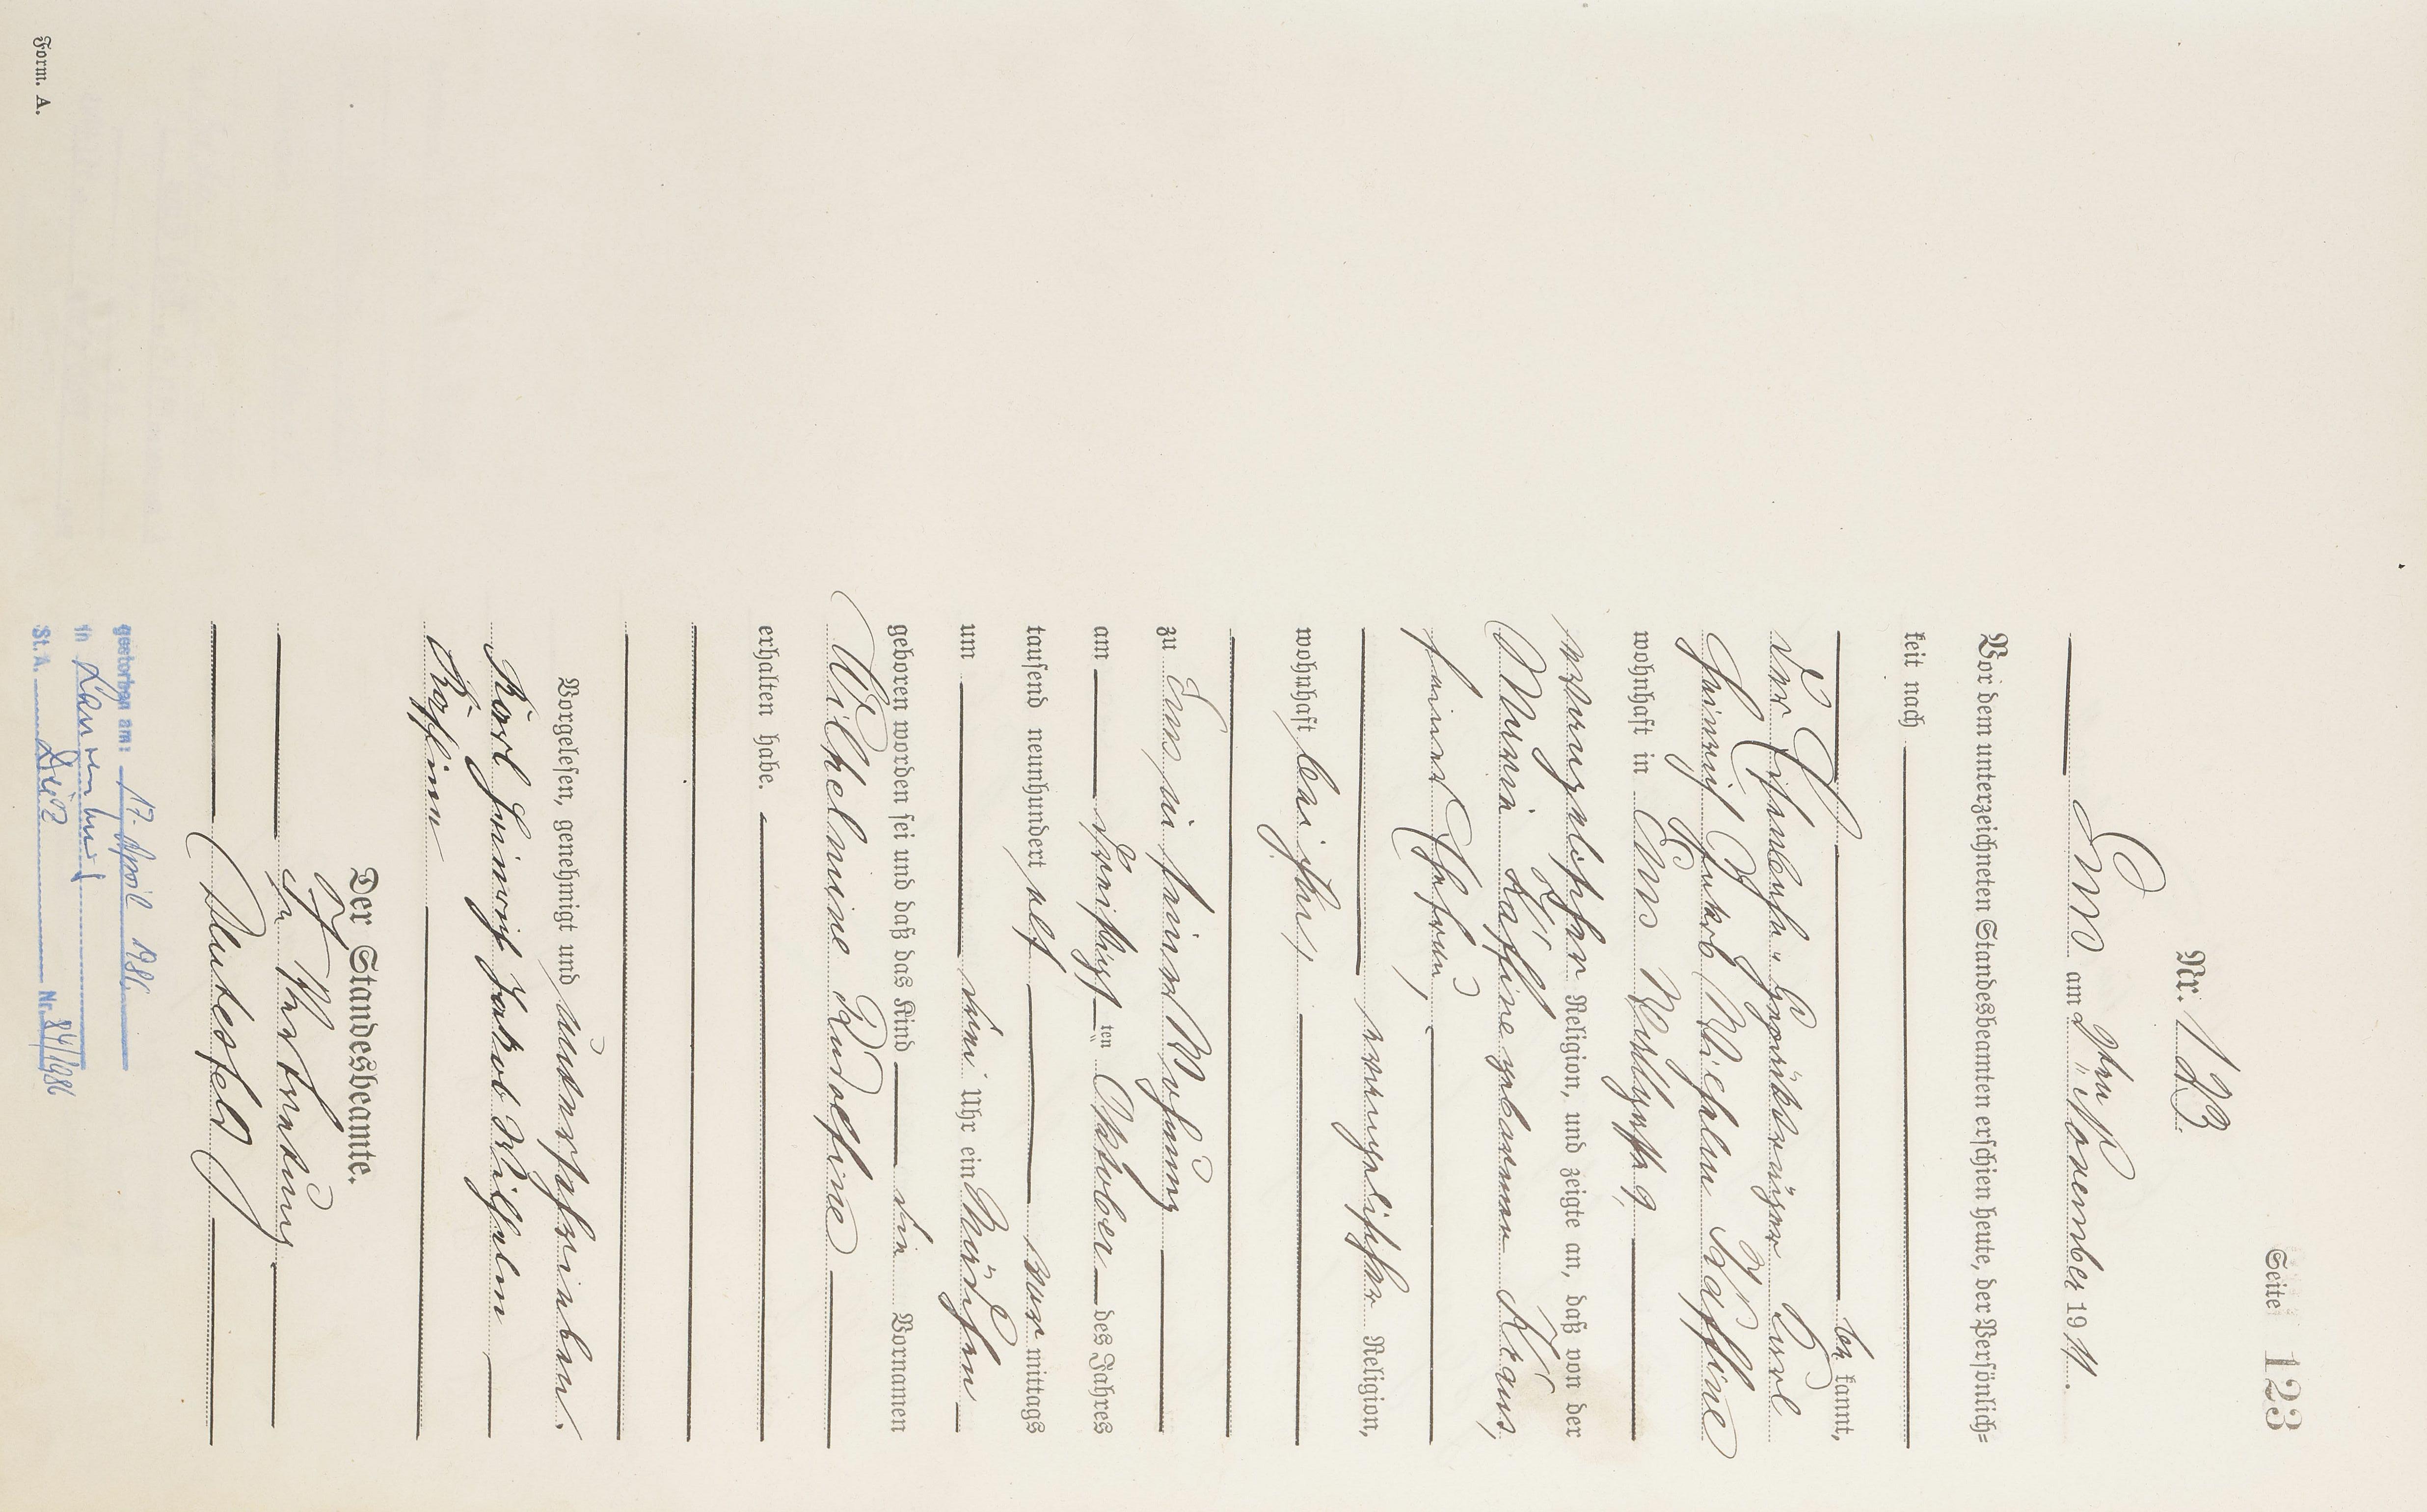 Seite 123
Nr. 123.
Ems am 2ten November 1911.
Vor dem unterzeichneten Standesbeamten erschien heute, der Persönlich=
keit nach
bekannt,
der Eisenbahn-Gepäckträger Carl
Heinrich Jakob Wilhelm Käffine
wohnhaft in Ems
evangelischer Religion, und zeigte an, daß von der
Maria Käffine geborenen Kraus,
seiner Ehefrau,
evangelischer Religion,
wohnhaft bei ihm,
zu Ems in seiner Wohnung
am dreißigsten Oktober des Jahres
tausend neunhundert elf vormittags
um drei Uhr ein Mädchen
geboren worden sei und daß das Kind die Vornamen
Wilhelmine Rudolfine
erhalten habe.
Vorgelesen, genehmigt und unterschrieben.
Karl Heinrich Jakob Wilhelm
Der Standesbeamte.
In Vertretung
gestorben am: 17. April 1986
in
St. A. Diez Nr. 84/1986
Form. A.